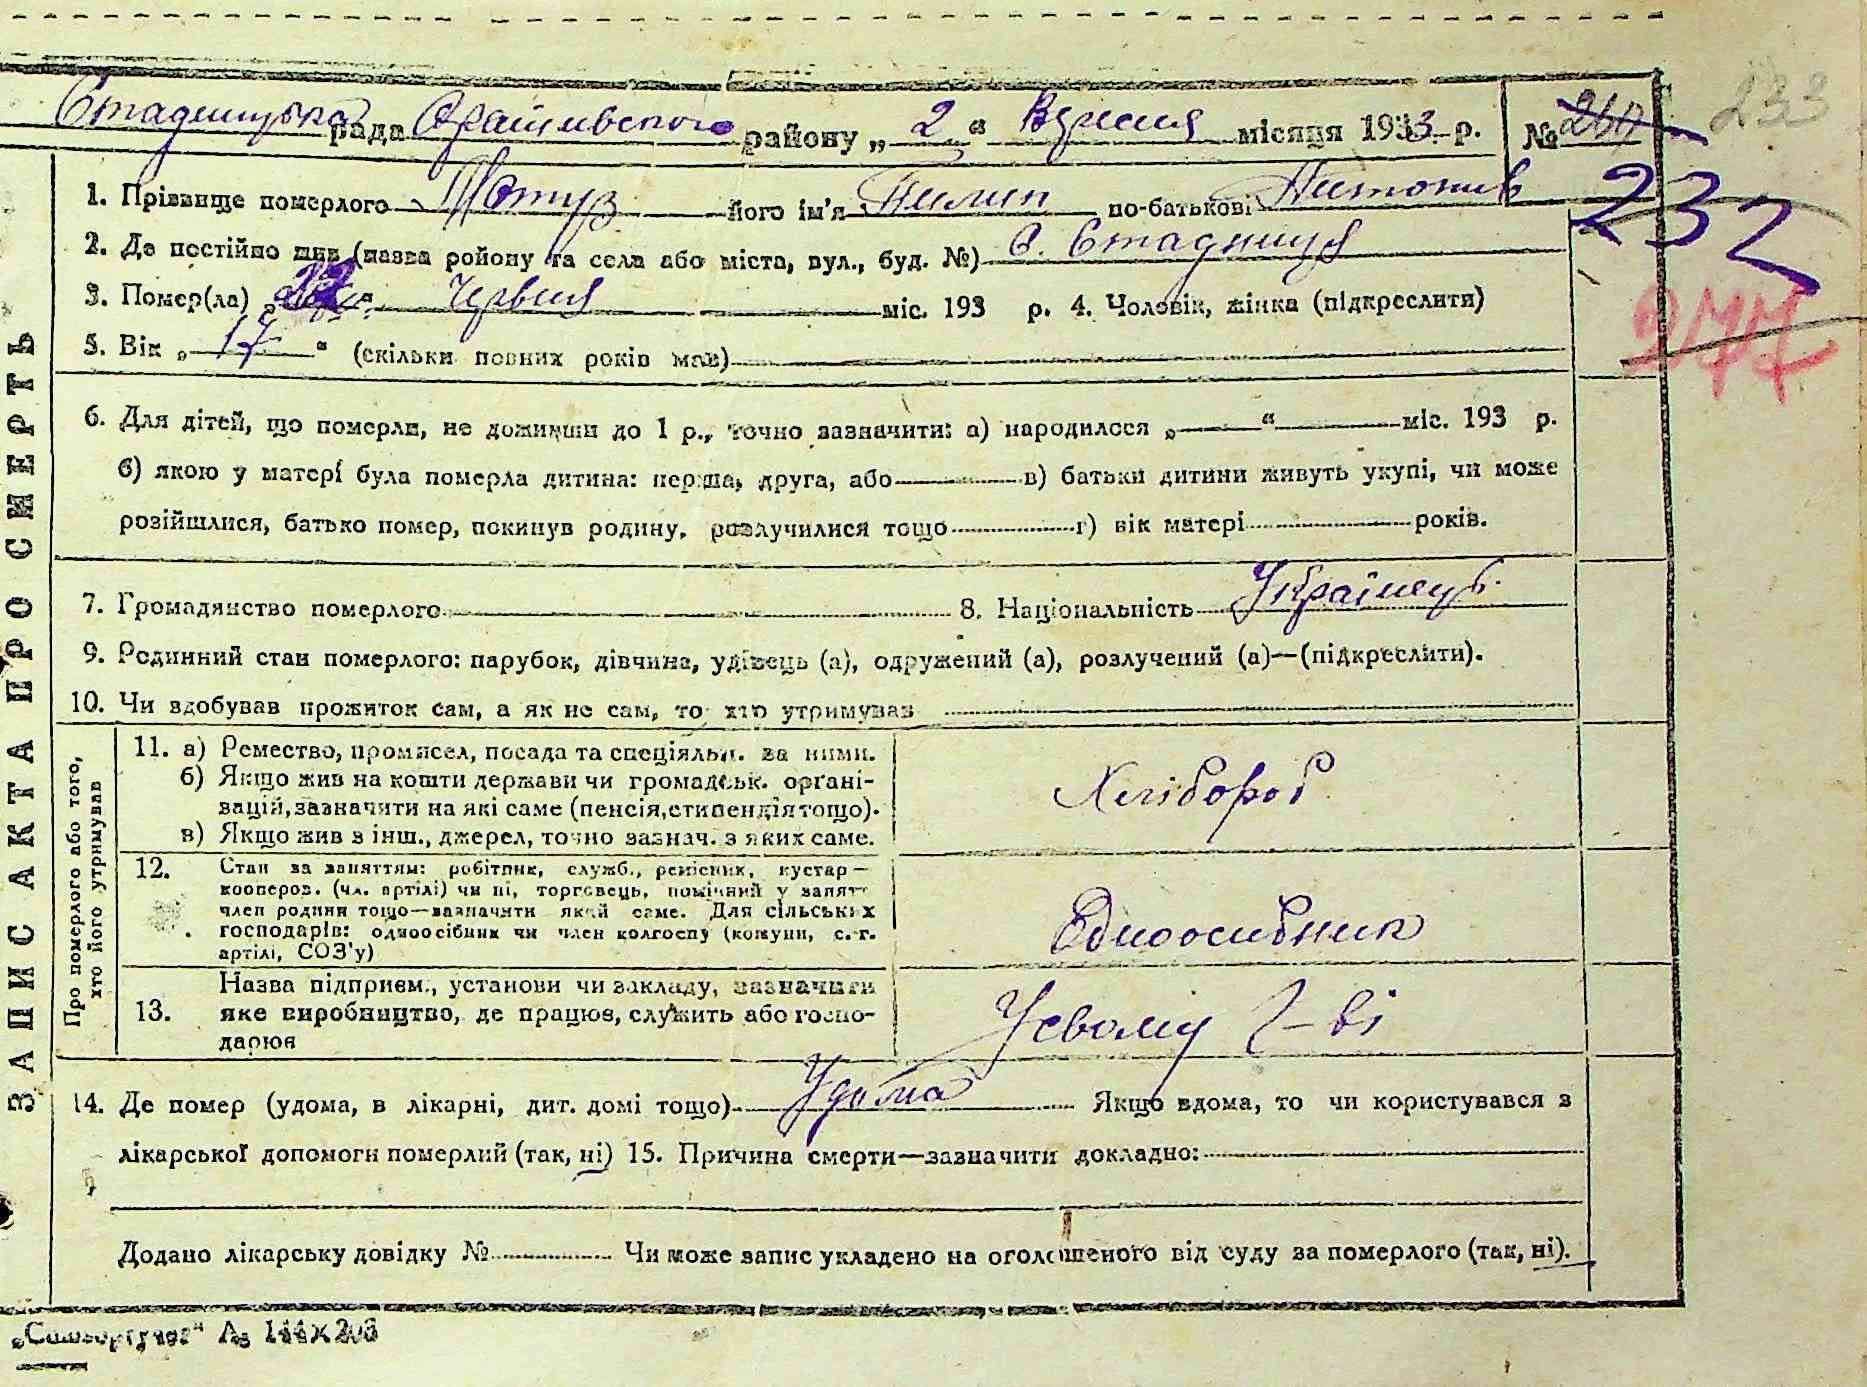 Стадницька рада району „2“ Вересня місяця 1933 р. № 260 233
232
277
ЗАПИС АКТА ПРО СМЕРТЬ
1. Прізвище померлого його ім'я Пилип по-батькові Антонів
2. Де постійно жив (назва ройону та села або міста, вул., буд. №) С. Стадниця
3. Помер(ла) Червня міс. 193 р. 4. Чоловік, жінка (підкреслити)
5. Вік „17“ (скільки повних років мав)
6. Для дітей, що померли, не доживши до 1 р., точно зазначити: а) народилося „ “ міс. 193 р.
б) якою у матері була померла дитина: перша, друга, або в) батьки дитини живуть укупі, чи може
розійшлися, батько помер, покинув родину, розлучилися тощо г) вік матері років.
7. Громадянство померлого 8. Національність Українець.
9. Родинний стан померлого: парубок, дівчина, удівець (а), одружений (а), розлучений (а)—(підкреслити).
10. Чи здобував прожиток сам, а як не сам, то хто утримував
Про померлого або того, хто його утримував
11. а) Ремество, промисел, посада та спеціяльн. за ними.
б) Якщо жив на кошти держави чи громадськ. органі-
зацій, зазначити на які саме (пенсія, стипендія тощо).
в) Якщо жив з інш., джерел, точно зазнач. з яких саме.
Хлібороб
12. Стан за заняттям: робітник, служб., ремісник, кустар—
кооперов. (чл. артілі) чи ні, торговець, помічний у занятт
член родини тощо—зазначити який саме. Для сільських
господарів: одноосібник чи член колгоспу (комуни, с.-г.
артілі, СОЗ'у)
Одноосибник
13. Назва підприєм., установи чи закладу, зазначити
яке виробництво, де працює, служить або госпо-
дарює
Усвому г-ві
14. Де помер (удома, в лікарні, дит. домі тощо) Удома Якщо вдома, то чи користувався з
лікарської допомоги померлий (так, ні) 15. Причина смерти—зазначити докладно:
Додано лікарську довідку № Чи може запис укладено на оголошеного від суду за померлого (так, ні).